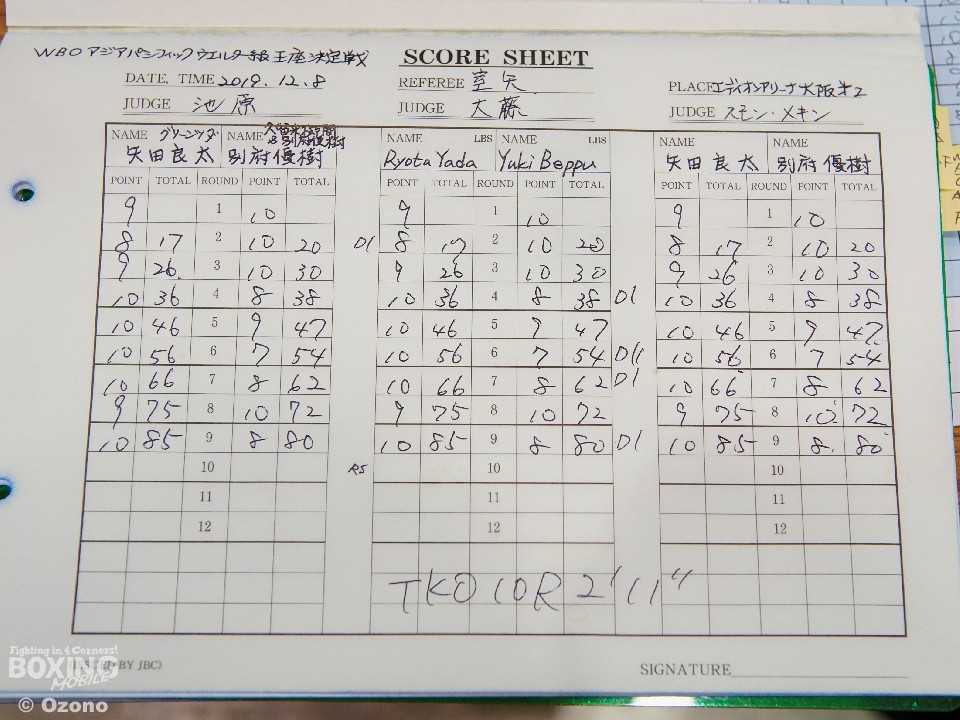 WBO アジアパシフィックウエルター級王座決定戦 SCORE SHEET
DATE, TIME 2019.12.8 REFEREE 室矢 PLACE エディオンアリーナ大阪オ2
JUDGE 池原 JUDGE 大藤 JUDGE スモン・メキン
NAME グリーンツダ NAME NAME LBS NAME LBS NAME NAME
矢田良太 別府優樹 Ryota Yada Yuki Beppu 矢田良太 別府優樹
POINT TOTAL ROUND POINT TOTAL POINT TOTAL ROUND POINT TOTAL POINT TOTAL ROUND POINT TOTAL
9 1 10 9 1 10 9 1 10
8 17 2 10 20 D1 8 17 2 10 20 8 17 2 10 20
9 26 3 10 30 9 26 3 10 30 9 26 3 10 30
10 36 4 8 38 10 36 4 8 38 D1 10 36 4 8 38
10 46 5 9 47 10 46 5 9 47 10 46 5 9 47
10 56 6 7 54 10 56 6 7 54 D11 10 56 6 7 54
10 66 7 8 62 10 66 7 8 62 D1 10 66 7 8 62
9 75 8 10 72 9 75 8 10 72 9 75 8 10 72
10 85 9 8 80 10 85 9 8 80 D1 10 85 9 8 80
10 RS 10 10
11 11 11
12 12 12
TKO 10R 2'11"
BY JBC) SIGNATURE
Fighting in 4 Corners!
BOXING
MOBILE
© Ozono